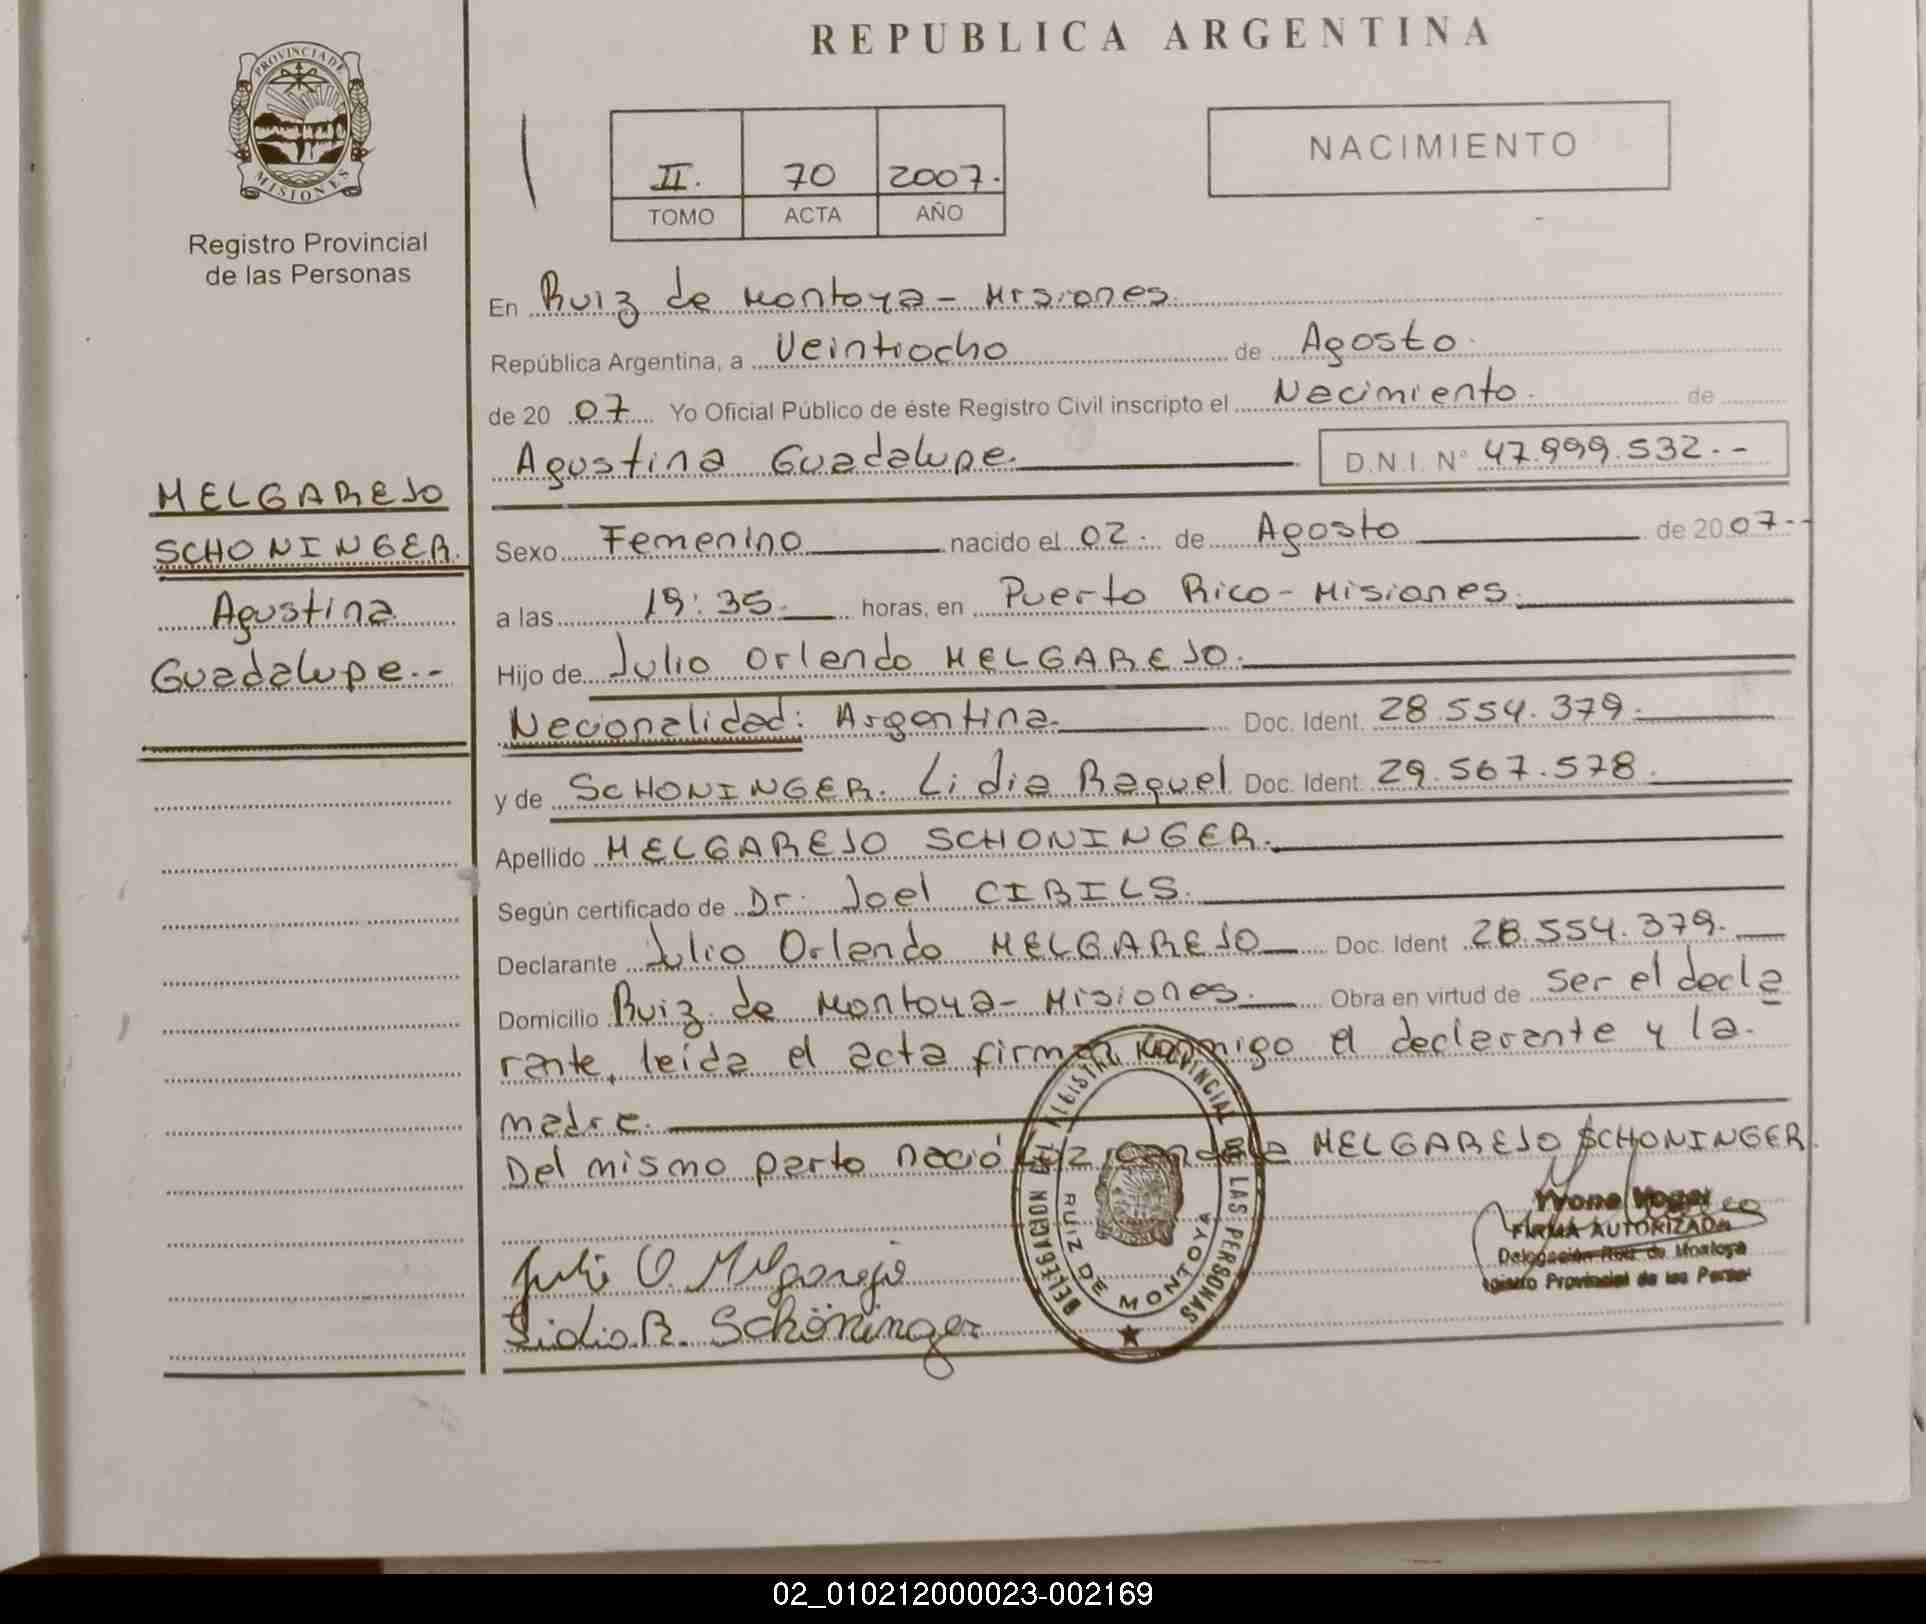 REPUBLICA ARGENTINA
PROVINCIA DE
MISIONES
Registro Provincial
de las Personas
II. 70 2007.
TOMO ACTA AÑO
NACIMIENTO
En Ruiz de Montoya - Misiones.
República Argentina, a Veintiocho de Agosto.
de 20 07 Yo Oficial Público de éste Registro Civil inscripto el Nacimiento. de
Agustina Guadalupe. D.N.I. N° 47.999.532.--
MELGAREJO
SCHONINGER.
Agustina
Guadalupe.--
Sexo Femenino nacido el 02. de Agosto de 2007.--
a las 19:35. horas, en Puerto Rico - Misiones.
Hijo de Julio Orlando MELGAREJO.
Nacionalidad: Argentina. Doc. Ident. 28.554.379.
y de SCHONINGER. Lidia Raquel Doc. Ident. 29.567.578.
Apellido MELGAREJO SCHONINGER.
Según certificado de Dr. Joel CIBILS.
Declarante Julio Orlando MELGAREJO Doc. Ident 28.554.379.
Domicilio Ruiz de Montoya - Misiones. Obra en virtud de ser el decla
rante, leída el acta firman conmigo el declarante y la.
madre.
Del mismo parto nació Luz Candela MELGAREJO SCHONINGER.
DELEGACION DEL REGISTRO PROVINCIAL DE LAS PERSONAS
RUIZ DE MONTOYA
Yvone
FIRMA AUTORIZADA
Delegación Ruiz de Montoya
Registro Provincial de las Person
Julio O. Melgarejo
Lidia R. Schöninger
02_010212000023-002169